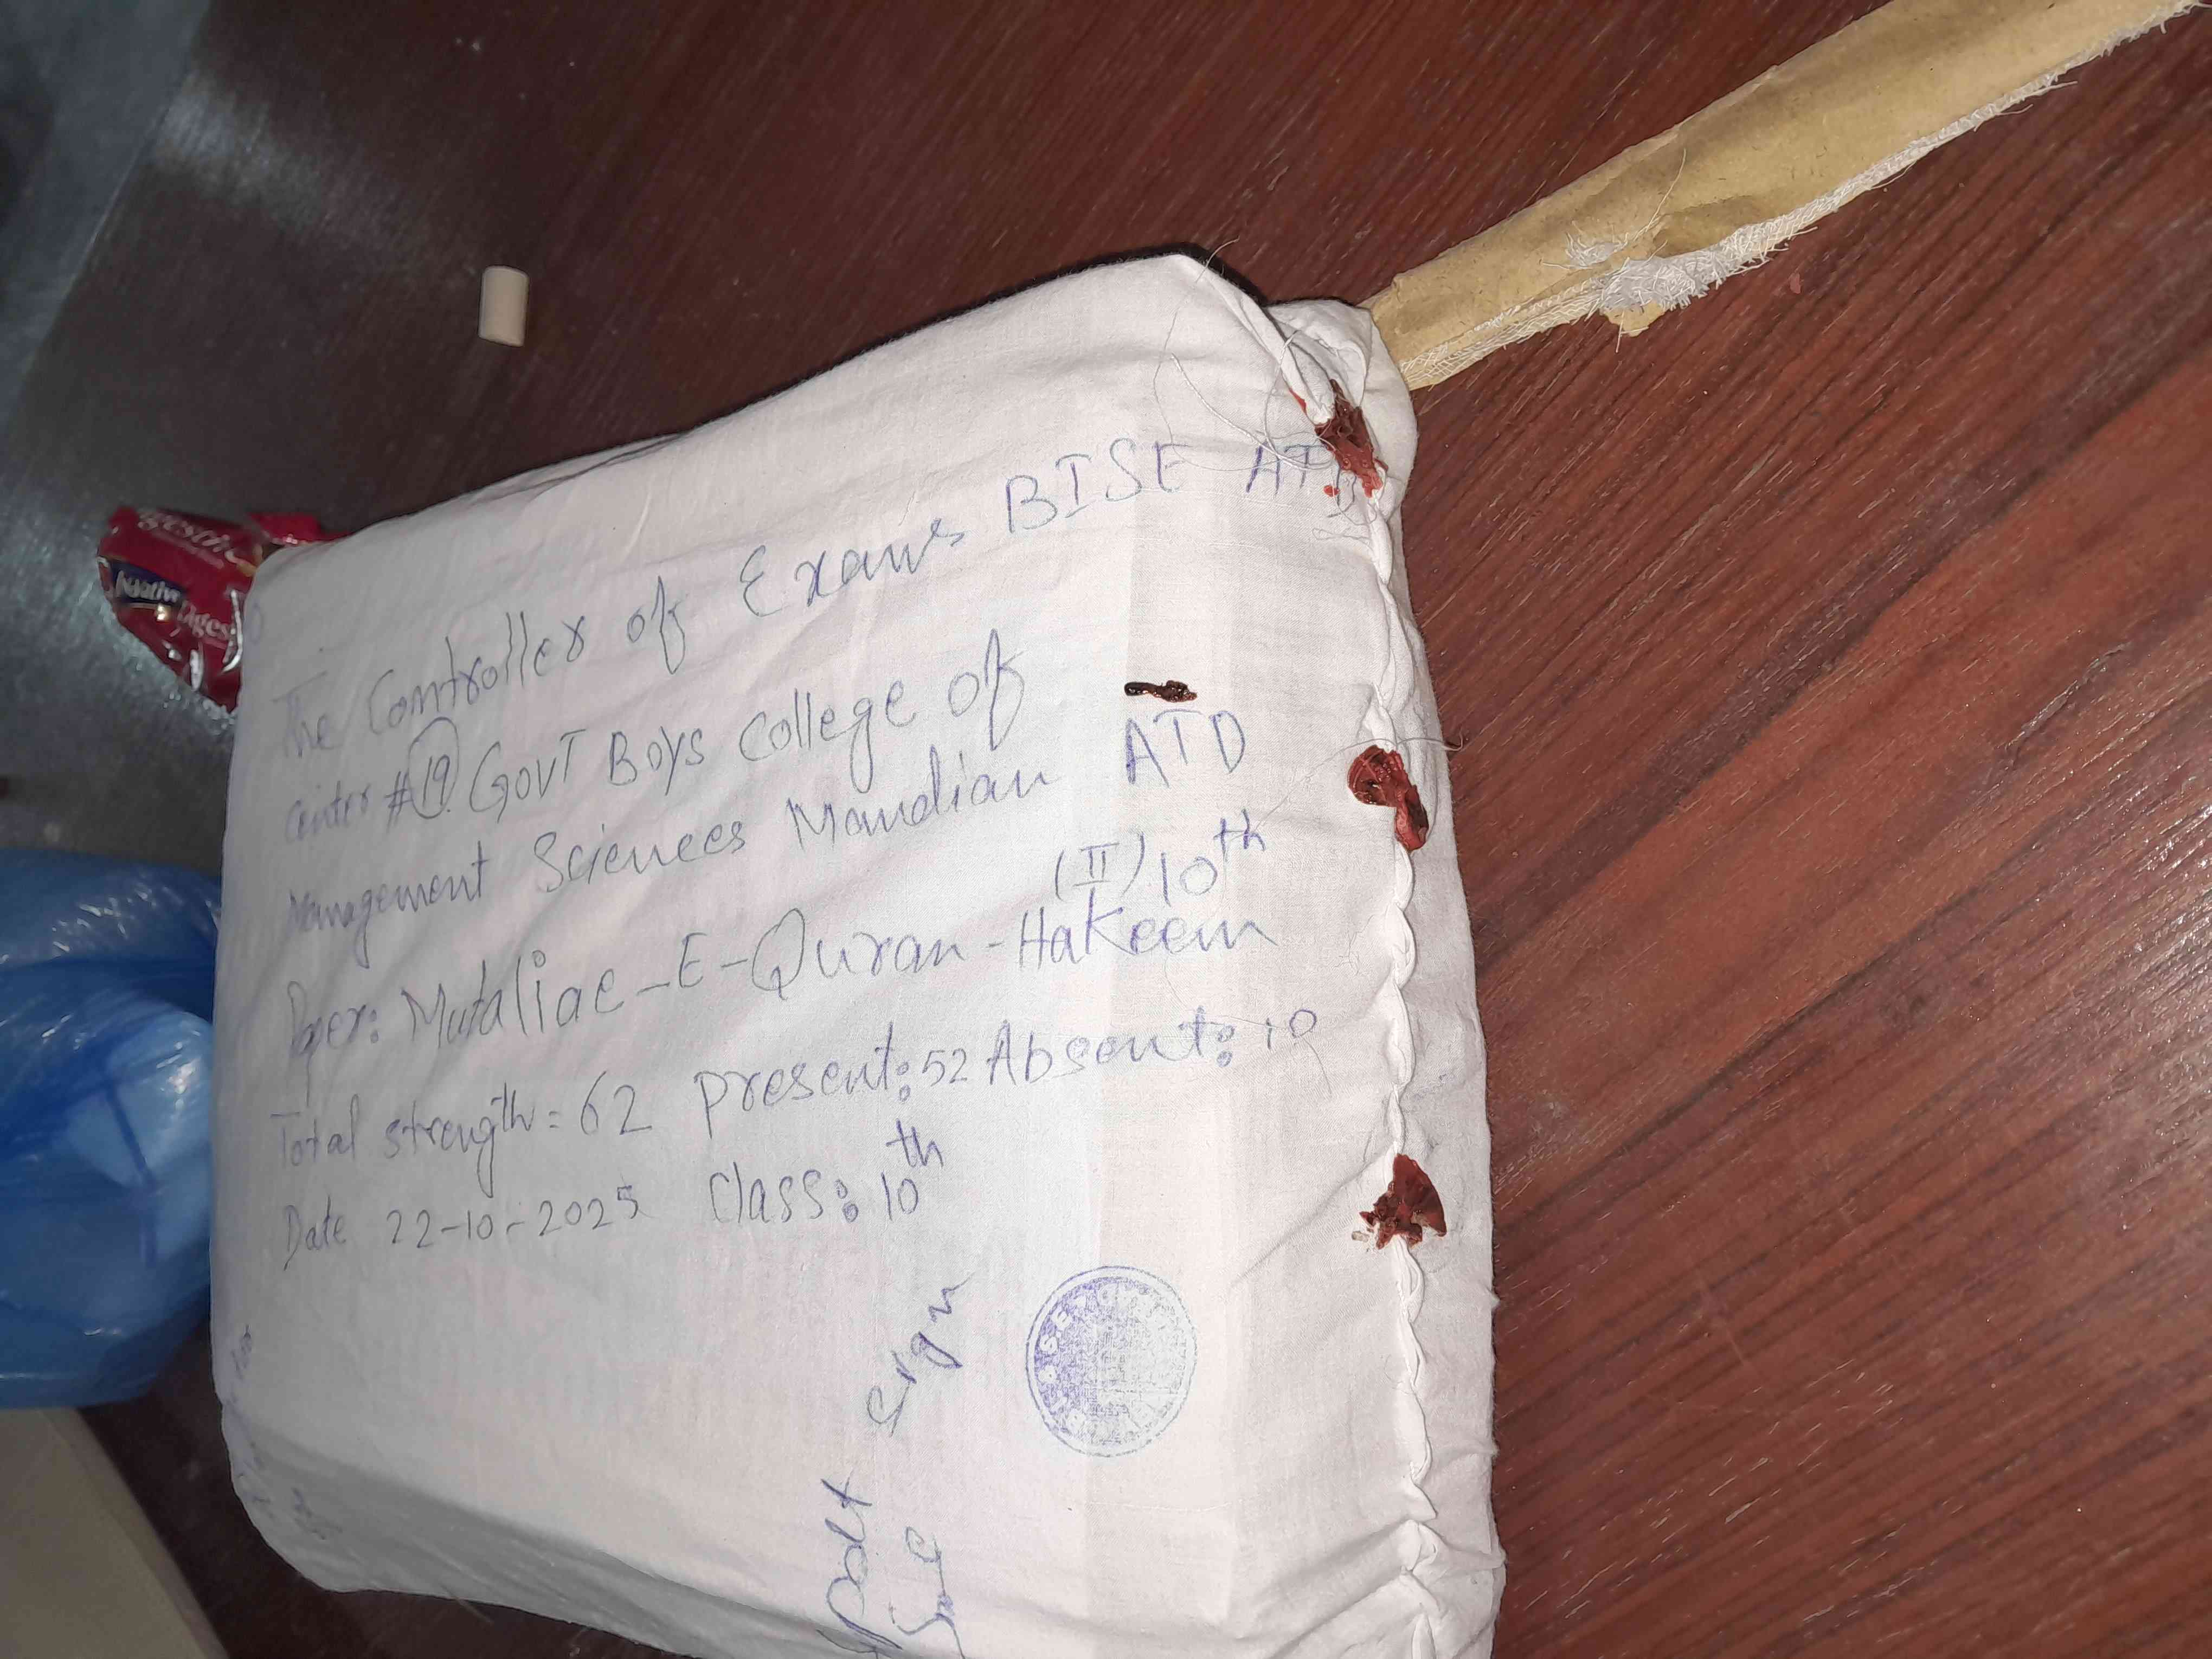 The Controller of Exams BISE ATD
Center # 19 Govt Boys College of
Management Sciences Mandian ATD
(II) 10th
Paper: Mutaliae-E-Quran-Hakeem
Total strength = 62 present: 52 Absent: 10
Date 22-10-2025 Class: 10th
Supdt Sign